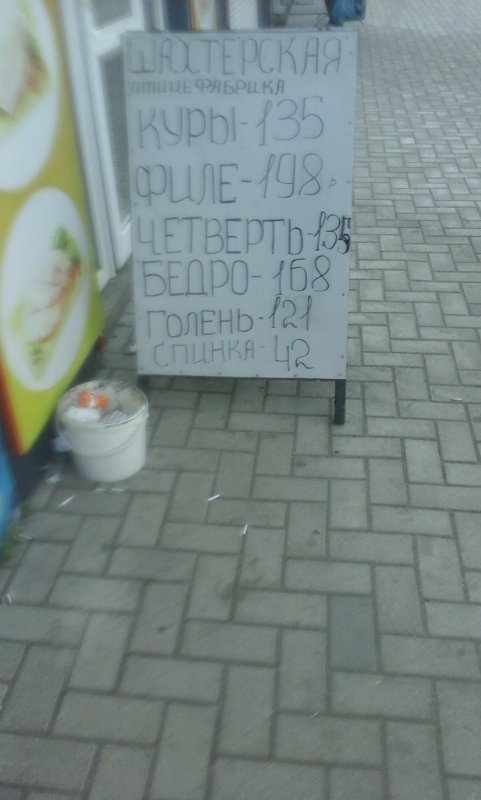 ШАХТЕРСКАЯ
ПТИЦЕФАБРИКА
КУРЫ-135
ФИЛЕ-198р
ЧЕТВЕРТЬ-135
БЕДРО-168
ГОЛЕНЬ-121
СПИНКА-42